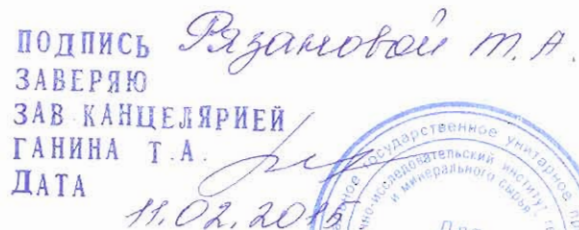 ПОДПИСЬ Рязановой Т. А.
ЗАВЕРЯЮ
ЗАВ КАНЦЕЛЯРИЕЙ
ГАНИНА Т.А.
ДАТА
11.02.2015
государственное унитарное
исследовательский институт
и минерального сырья